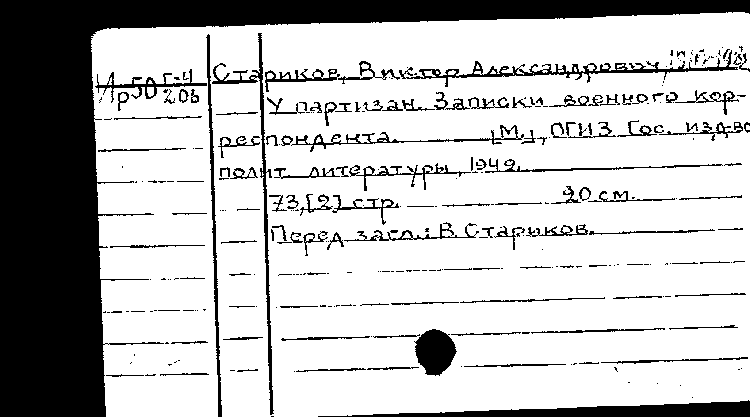 Ир50 Г-4
206
Стариков, Виктор Александрович,
У партизан. Записки военного кор-
респондента. [М.], ОГИЗ Гос. изд-во
полит. литературы, 1942.
73,[2] стр. 20 см.
Перед загл.: В. Стариков.